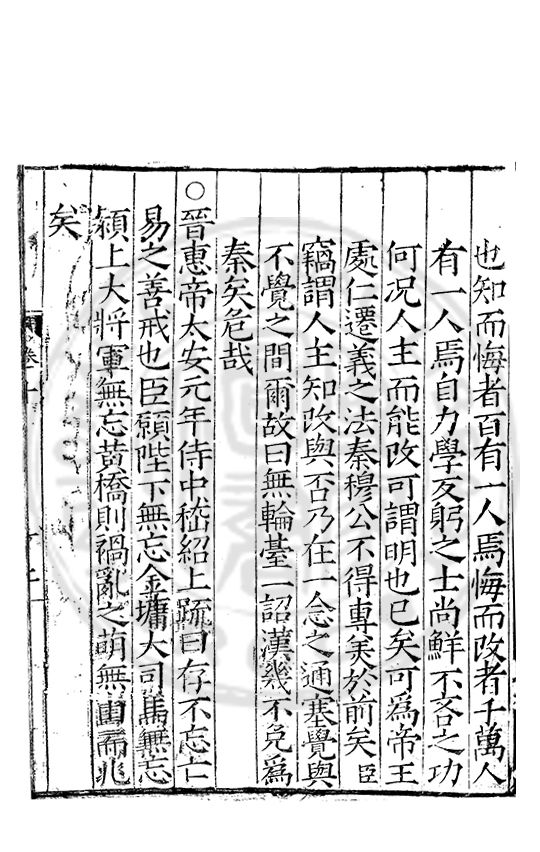 也知而悔者百有一人焉悔而改者千萬人
有一人焉自力學反躬之士尚鮮不吝之功
何況人主而能改可謂明也已矣可為帝王
處仁遷義之法秦穆公不得專美於前矣臣
竊謂人主知改與否乃在一念之通塞覺與
不覺之間爾故曰無輪臺一詔漢幾不免為
秦矣危哉
○晉惠帝太安元年侍中嵇紹上疏曰存不忘亡
易之善戒也臣願陛下無忘金墉大司馬無忘
潁上大將軍無忘黃橋則禍亂之萌無由而兆
矣